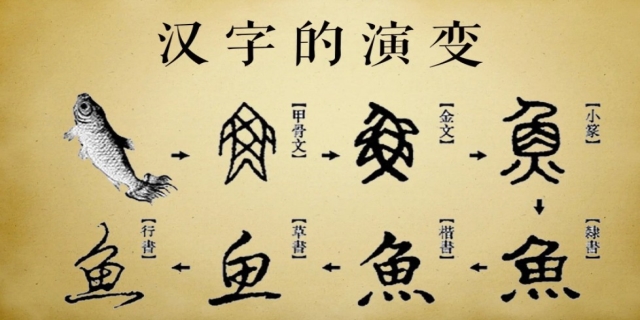 汉字的演变
【甲骨文】
【金文】
【小篆】
【隸書】
【楷書】
【草書】
【行書】
魚
魚
魚
魚
鱼
魚